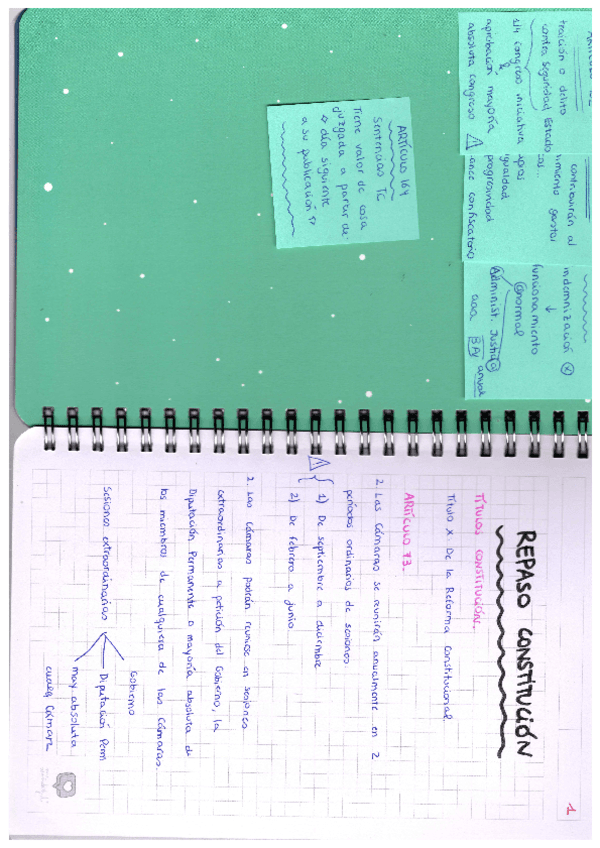 ARTÍCULO 102
traición o delito
contra seguridad Estado
1/4 Congreso iniciativa
aprobación mayoría
absoluta Congreso
contribuirán al
imiento gastos
igualdad
progresividad
ance confiscatorio
indemnización
↓
funcionamiento
@normal
Administ. Justici@
anual
ARTÍCULO 164
Sentencias TC
Tiene valor de cosa
juzgada a partir de
día siguiente
a su publicación
1
REPASO CONSTITUCIÓN
TÍTULOS CONSTITUCIÓN.
Título X De la Reforma Constitucional.
ARTÍCULO 73.
2. Las Cámaras se reunirán anualmente en 2
períodos ordinarios de sesiones
1) De septiembre a diciembre
2) De febrero a junio
2. Las Cámaras podrán reunirse en sesiones
extraordinarias a petición del Gobierno, la
Diputación Permanente o mayoría absoluta de
los miembros de cualquiera de las Cámaras.
Gobierno
Sesiones extraordinarias
Diputación Perm
may. absoluta
cualq Cámara